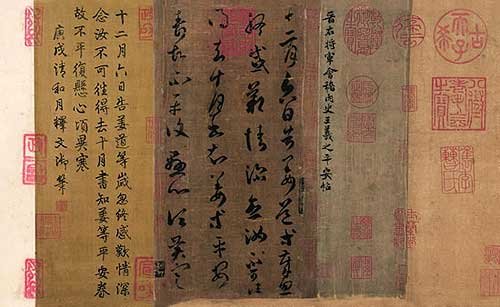 古希天子
八徵耄念之寶
晉右將軍會稽內史王羲之平安帖
十二月六日告姜道等歲忽
終感歎情深念汝不可往
得去十月書知姜等平安
壽故不平復懸心頃異寒
十二月六日告姜道等歲忽終感歎情深
念汝不可往得去十月書知姜等平安壽
故不平復懸心頃異寒
庚戌清和月釋文御筆